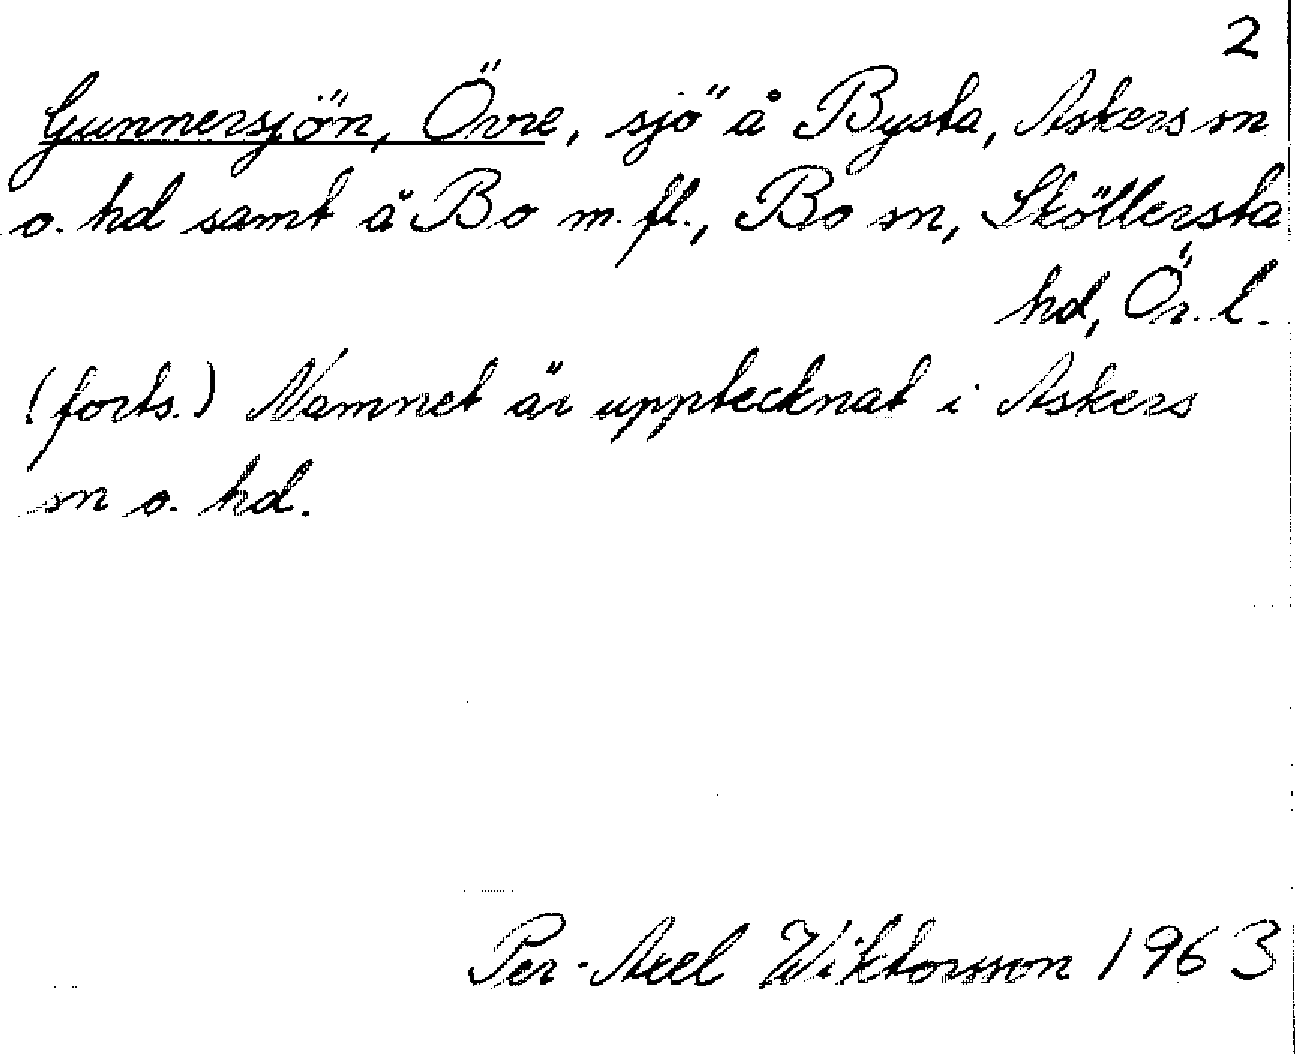 2
Gunnersjön, Övre, sjö å Bysta, Askers sn
o. hd samt å Bo m. fl., Bo sn, Sköllersta
hd, Ör. l.
(forts.) Namnet är upptecknat i Askers
sn o. hd.
Per-Axel Wiktorsson 1963